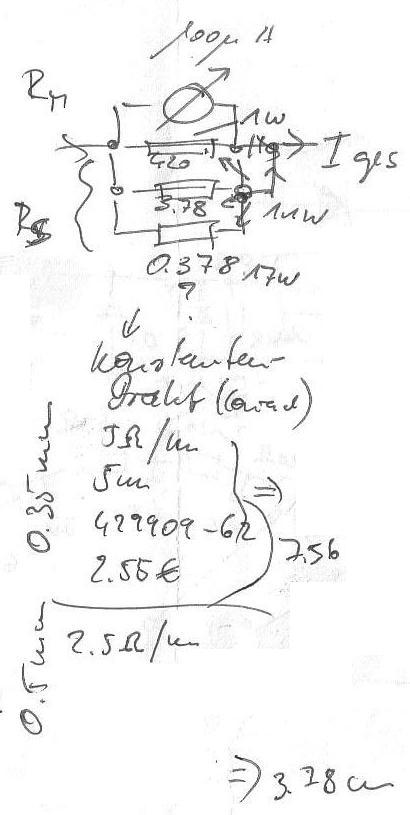 100µ A
R_M
1W
420
I ges
3.78
11W
R_S
0.378
17W
?
Konstanten-
Draht (Conrad)
5Ω/m
0.35mm
5m
429909-62
2.55€
=> 7.56
0.5mm
2.5Ω/m
=> 3.78cm